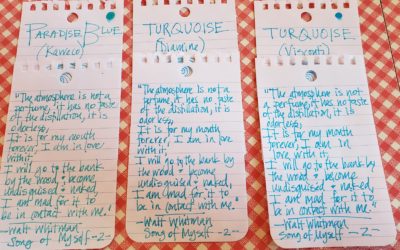 PARADISE BLUE
(Kaweco)
"The atmosphere is not a
perfume, it has no taste
of the distillation, it is
odorless,
It is for my mouth
forever, I am in love
with it,
I will go to the bank
by the wood & become
undisguised & naked,
I am mad for it to
be in contact with me."
-Walt Whitman
Song of Myself -2-
TURQUOISE
(Diamine)
"The atmosphere is not a
perfume, it has no taste
of the distillation, it is
odorless,
It is for my mouth
forever, I am in love
with it,
I will go to the bank
by the wood & become
undisguised & naked,
I am mad for it to
be in contact with me."
-Walt Whitman
Song of Myself -2-
TURQUOISE
(Visconti)
"The atmosphere is not
a perfume, it has no taste
of the distillation, it is
odorless,
It is for my mouth
forever, I am in
love with it,
I will go to the bank
by the wood & become
undisguised & naked,
I am mad for it to
be in contact with me."
-Walt Whitman
Song of Myself -2-